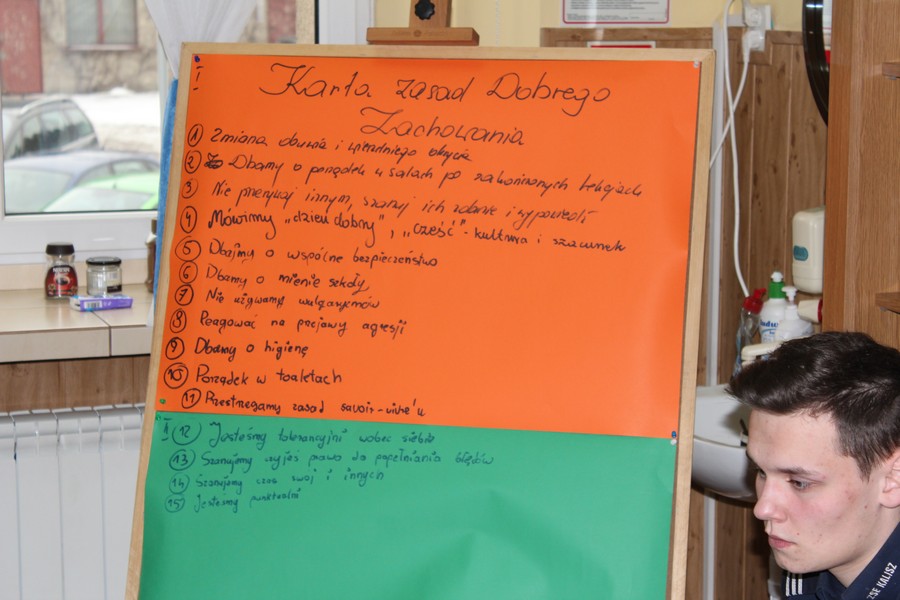 I
Karta zasad Dobrego
Zachowania
1 Zmiana obuwia i wierzchniego okrycia
2 Dbamy o porządek w salach po zakończonych lekcjach
3 Nie przerywaj innym, szanuj ich zdanie i wypowiedzi
4 Mówimy „dzień dobry”, „cześć” - kultura i szacunek
5 Dbajmy o wspólne bezpieczeństwo
6 Dbamy o mienie szkoły
7 Nie używamy wulgaryzmów
8 Reagować na przejawy agresji
9 Dbamy o higienę
10 Porządek w toaletach
11 Przestrzegamy zasad savoir-vivre'u
II
12 Jesteśmy tolerancyjni wobec siebie
13 Szanujemy czyjeś prawo do popełniania błędów
14 Szanujemy czas swój i innych
15 Jesteśmy punktualni
ZSE KALISZ